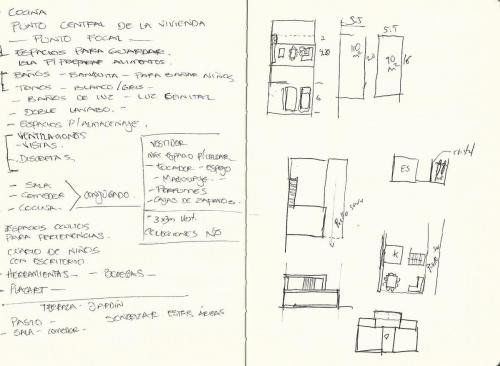 - COCINA
PUNTO CENTRAL DE LA VIVIENDA
— PUNTO FOCAL —
- ESPACIOS PARA GUARDAR.
ISLA P/ PREPARAR ALIMENTOS.
- BAÑOS - BAÑERITA - PARA BAÑAR NIÑOS
- TONOS - BLANCO/GRIS -
- BAÑOS DE LUZ - LUZ CENITAL
- DOBLE LAVABO. -
- ESPACIOS P/ALMACENAJE.
VENTILACIONES
- VISTAS.
DISCRETAS,
- SALA
- COMEDOR
- COCINA
CONJUGADO
VESTIDOR
MAS ESPACIO P/
- TOCADOR - ESPEJO
- MAQUILLAJE -
- PERFUMES
- CAJAS DE ZAPATOS.
COLECCIONES NO
ESPACIOS
PARA PERTENENCIAS.
CUARTO DE NIÑOS
CON ESCRITORIO.
- HERRAMIENTAS - - BODEGAS -
- PLACART -
TERRAZA - JARDIN
PASTO - SOMBREAR ESTAS ÁREAS
- SALA - COMEDOR -
5.5
5.5
2
6
110 m²
20
90 m²
16
ES
K